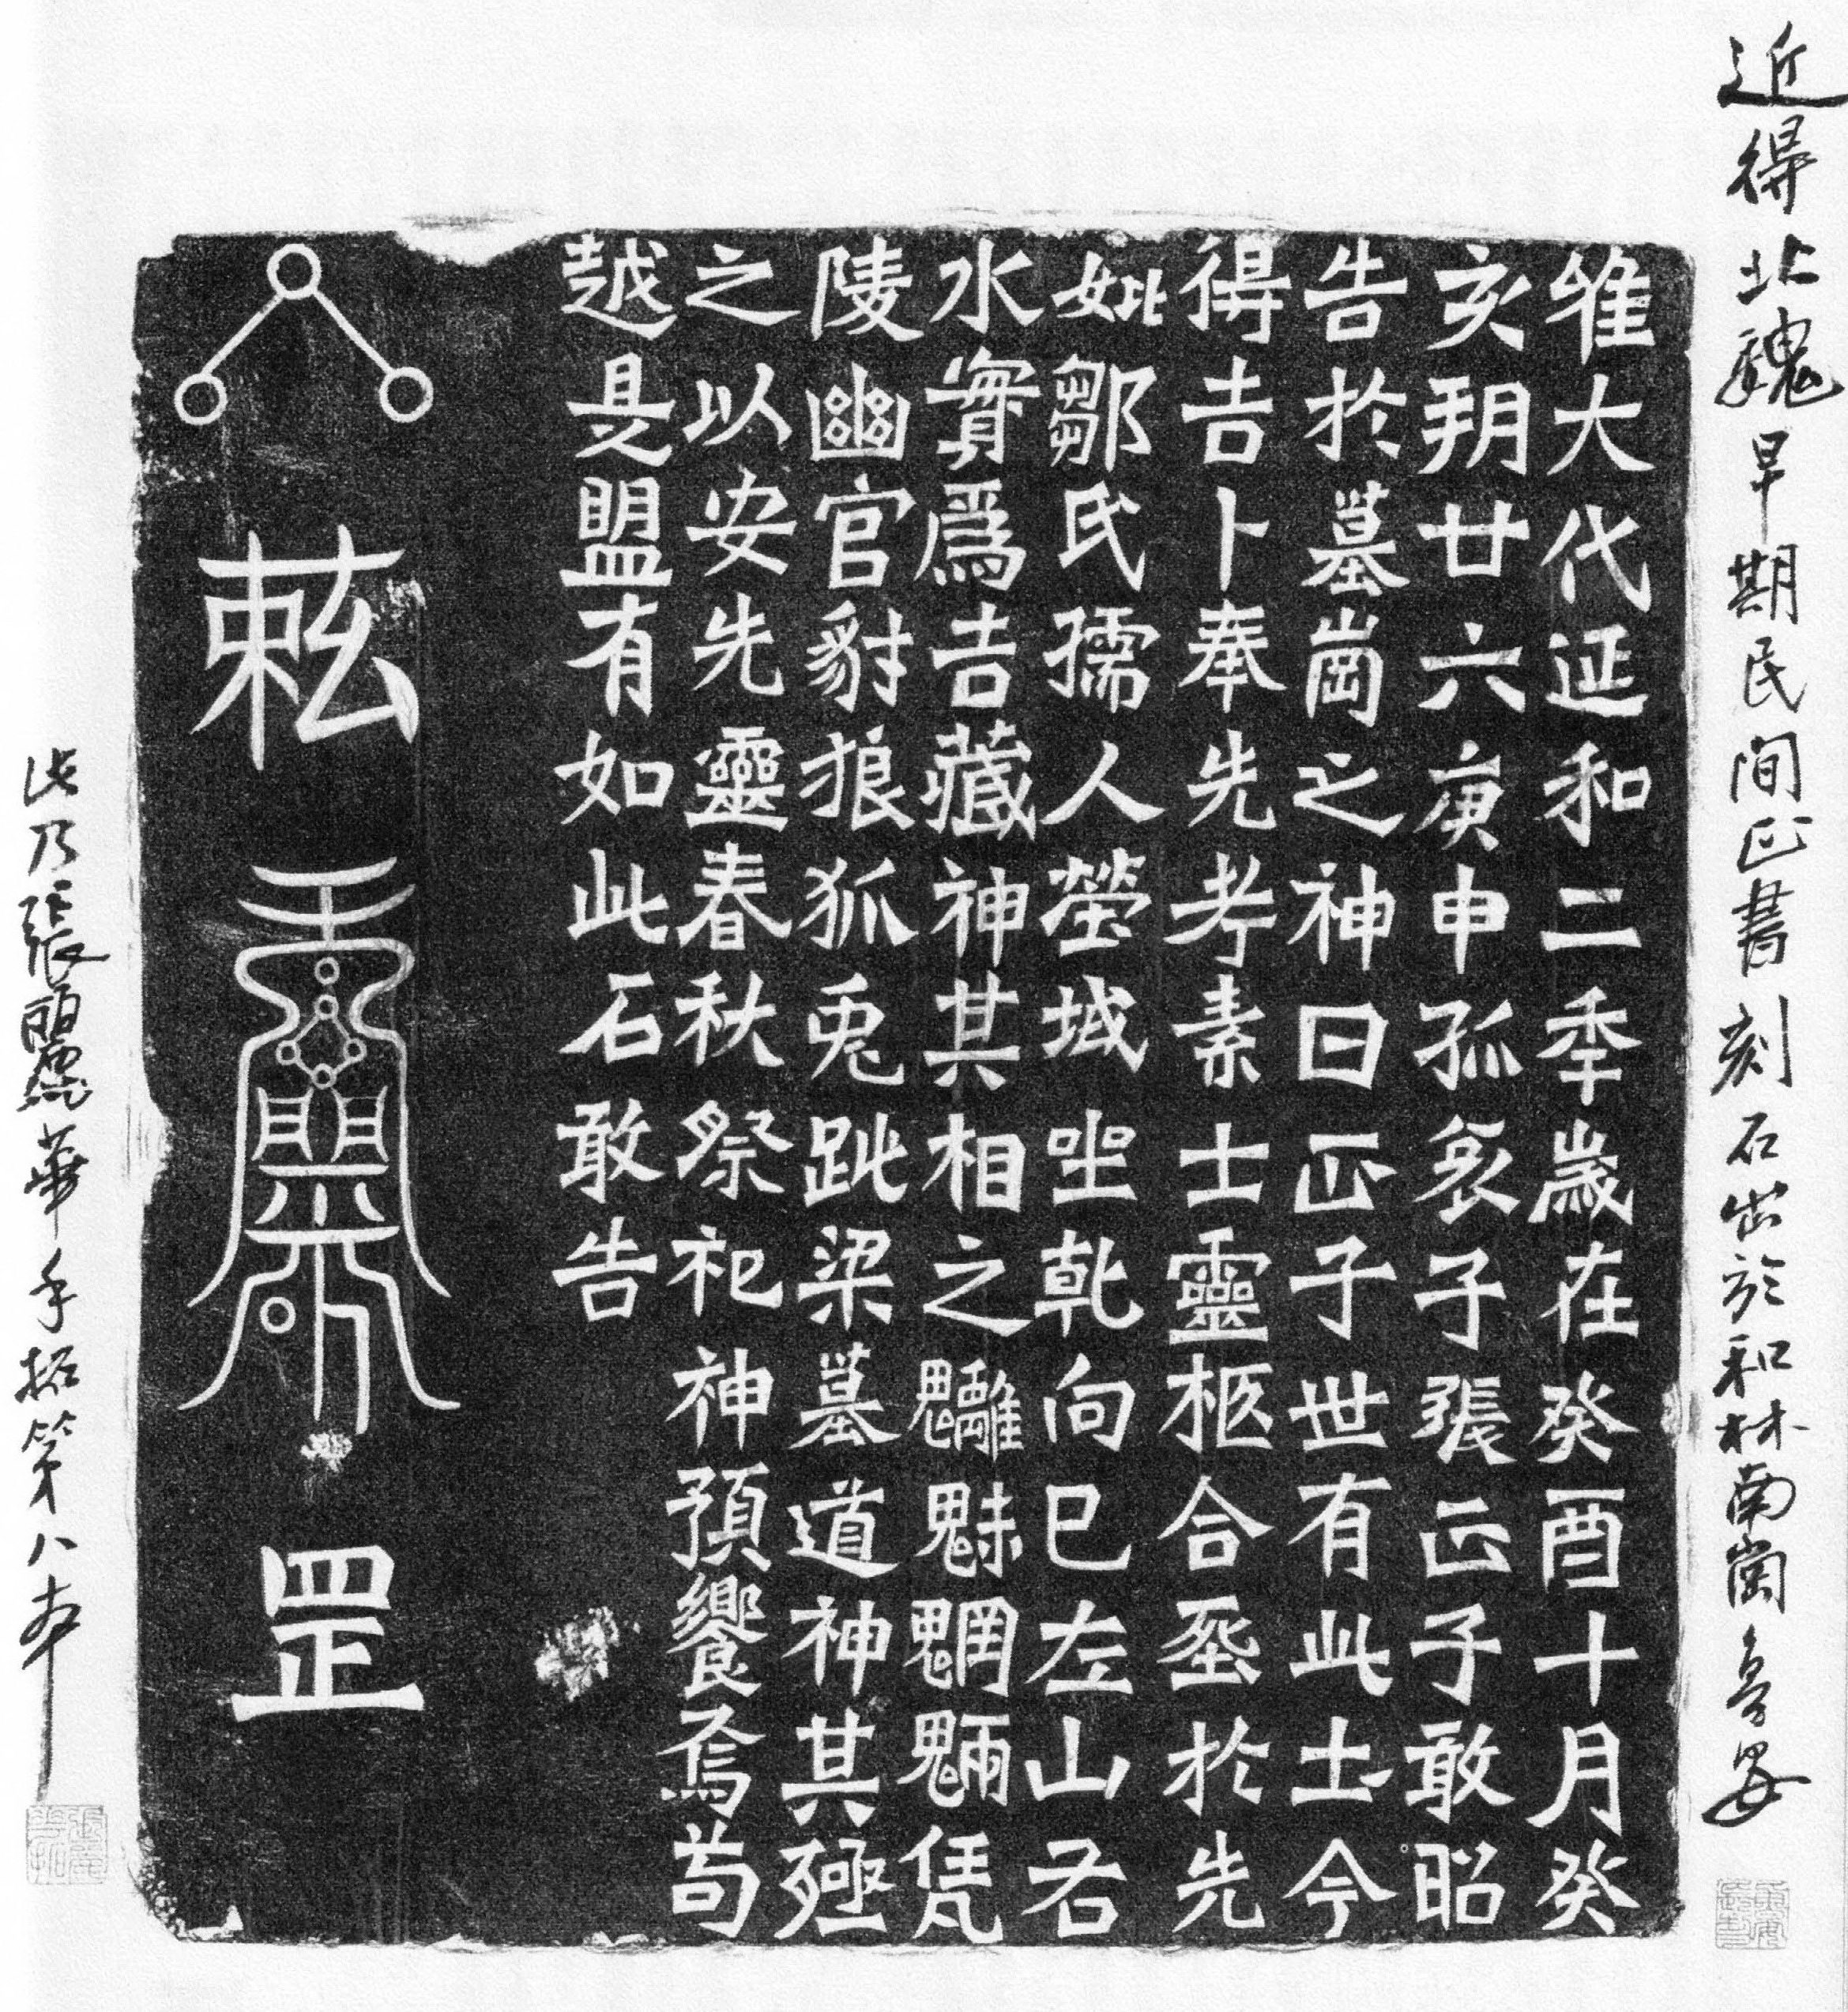 近得北魏早期民间正書刻石出於和林南崗
惟大代延和二秊歲在癸酉十月癸
亥朔廿六庚申孤哀子張正子敢昭
告於墓崗之神曰正子世有此土今
得吉卜奉先考素士靈柩合垩於先
妣鄒氏孺人塋域坐乾向巳左山右
水實爲吉藏神其相之魑魅魍魎凭
陵幽宫豺狼狐兎跐梁墓道神其殛
之以安先靈春秋祭祀神預饗焉苟
越是盟有如此石敢告
敕
罡
此乃張麗華手拓第八本